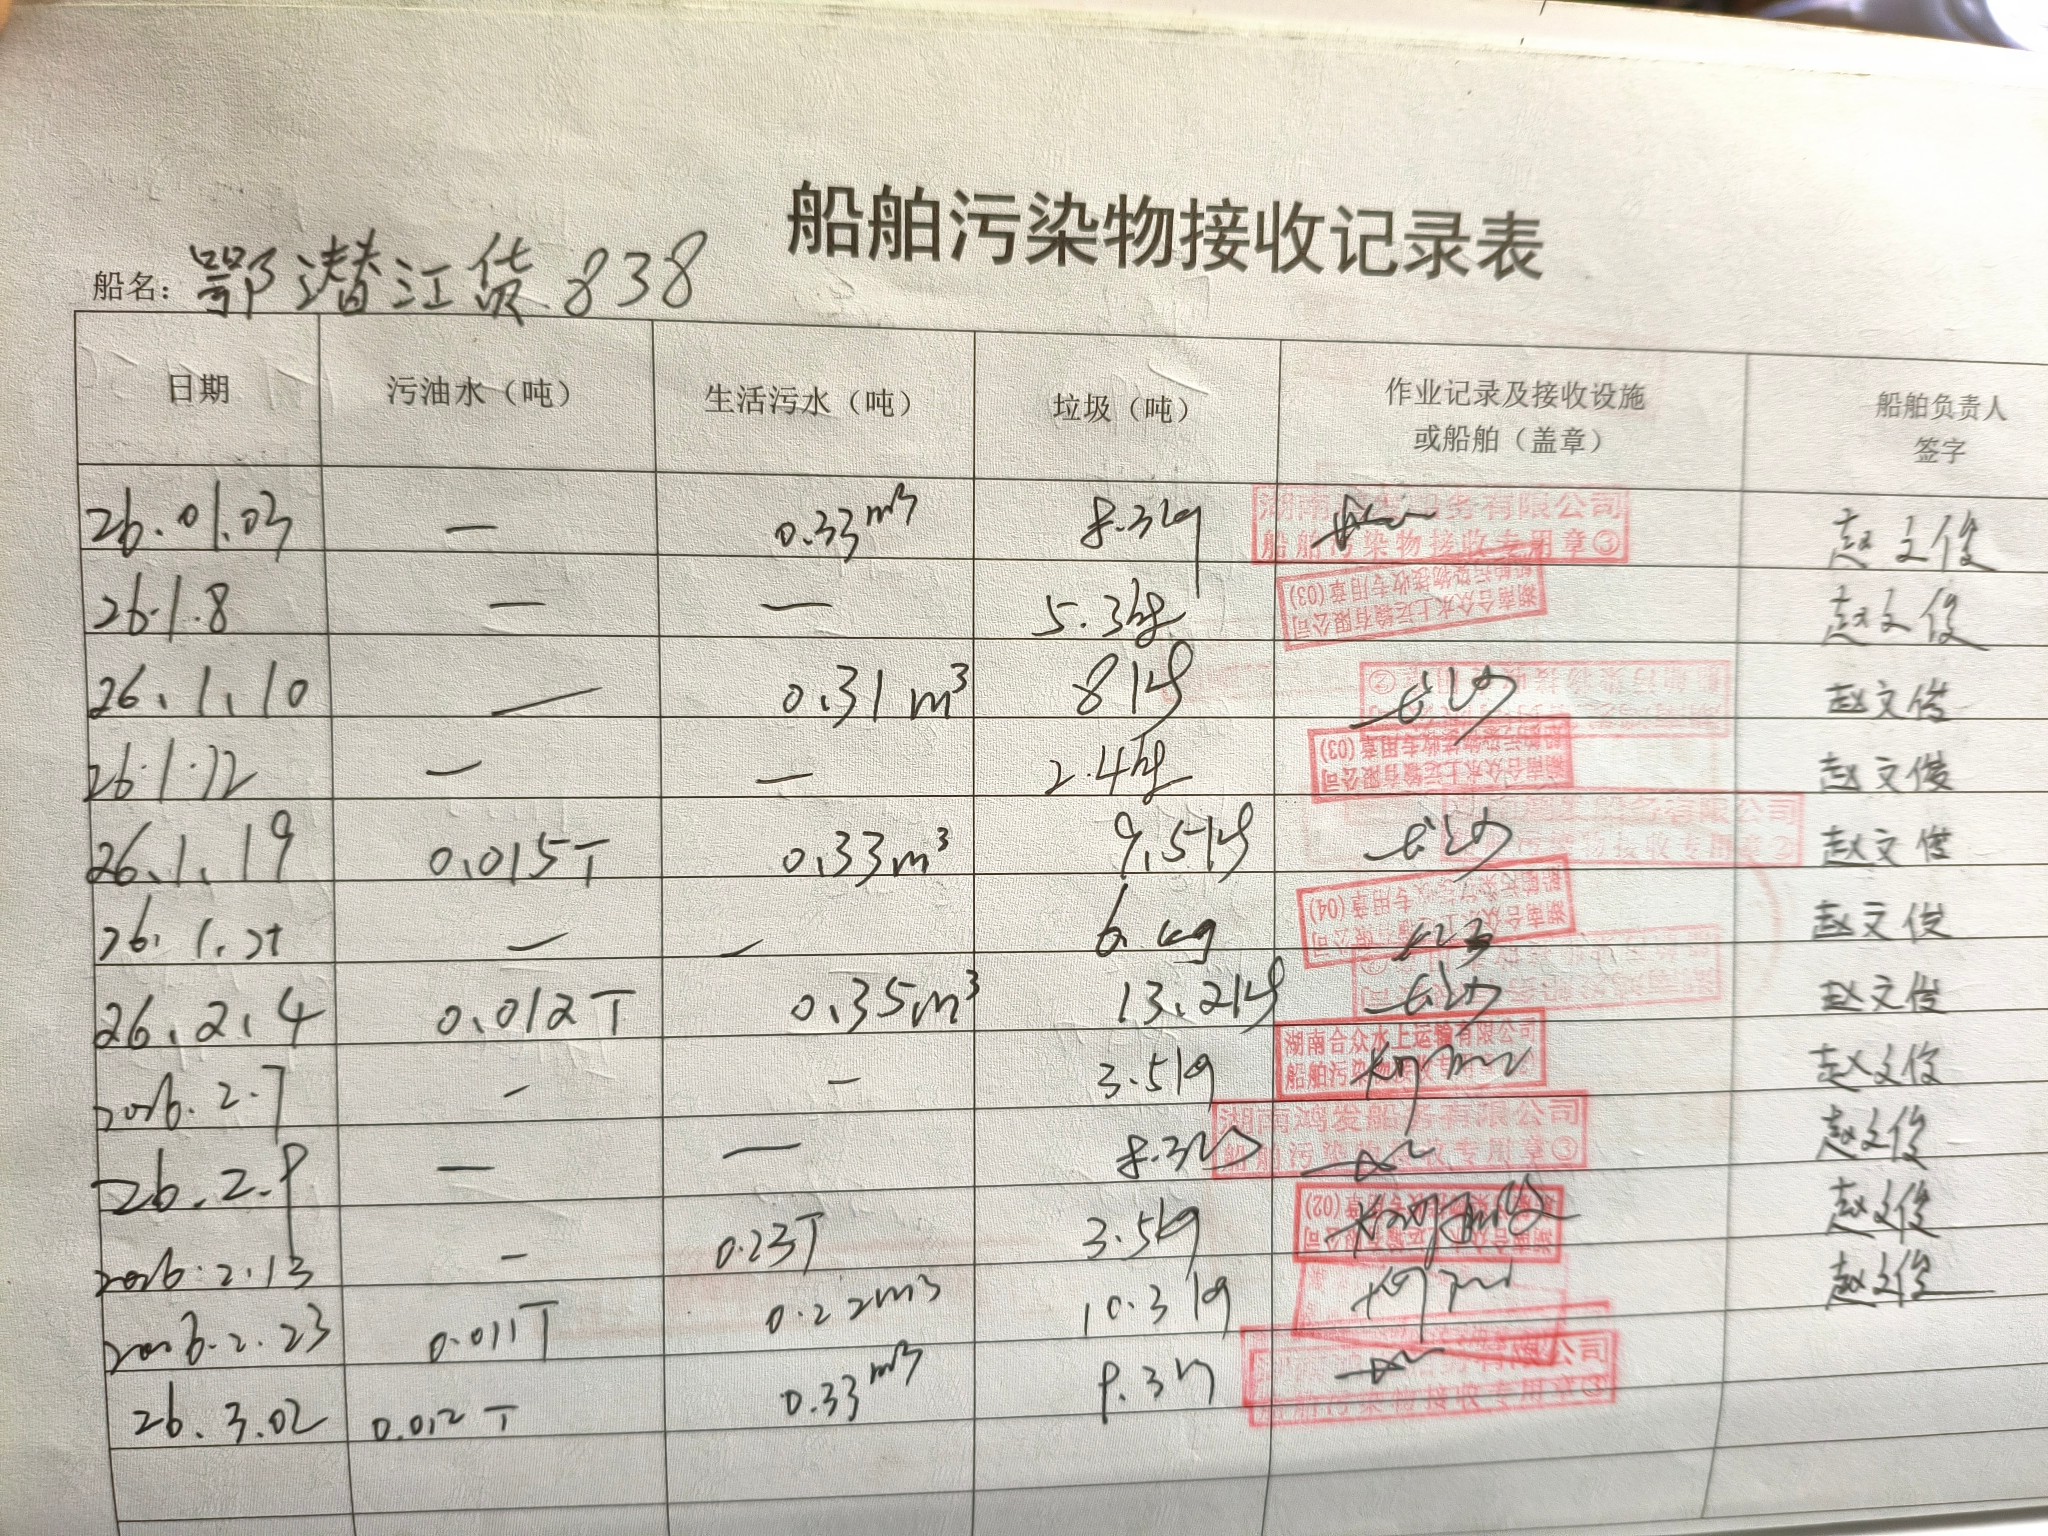 船舶污染物接收记录表
船名：鄂潜江货838
日期 污油水（吨） 生活污水（吨） 垃圾（吨） 作业记录及接收设施或船舶（盖章） 船舶负责人签字
26.01.03 — 0.33m3 8.3kg 船舶污染物接收专用章③ 赵文俊
26.1.8 — — 5.3kg 湖南合众水上运输有限公司 船舶污染物接收专用章(03) 赵文俊
26.1.10 — 0.31m³ 8kg 长沙 赵文俊
26.1.12 — — 2.4kg 湖南合众水上运输有限公司 船舶污染物接收专用章(03) 赵文俊
26.1.19 0.015T 0.33m³ 9.5kg 长沙 赵文俊
26.1.21 — — 6kg 湖南合众水上运输有限公司 船舶污染物接收专用章(04) 赵文俊
26.2.4 0.012T 0.35m³ 13.2kg 长沙 赵文俊
2026.2.7 - - 3.5kg 湖南合众水上运输有限公司 船舶污染物接收专用章 赵文俊
26.2.9 — — 8.3kg 湖南鸿发船务有限公司 船舶污染物接收专用章③ 赵文俊
2026.2.13 - 0.23T 3.5kg (02) 赵文俊
2026.2.23 0.011T 0.22m3 10.3kg 赵文俊
26.3.02 0.012T 0.33m3 9.3kg 船舶污染物接收专用章③